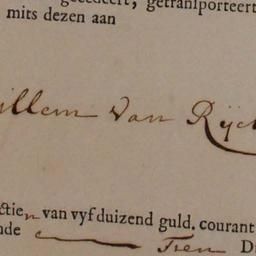 getransporteert
mits dezen aan
illem Van Rÿck
ctien van vyf duizend guld. courant
nde Tien D